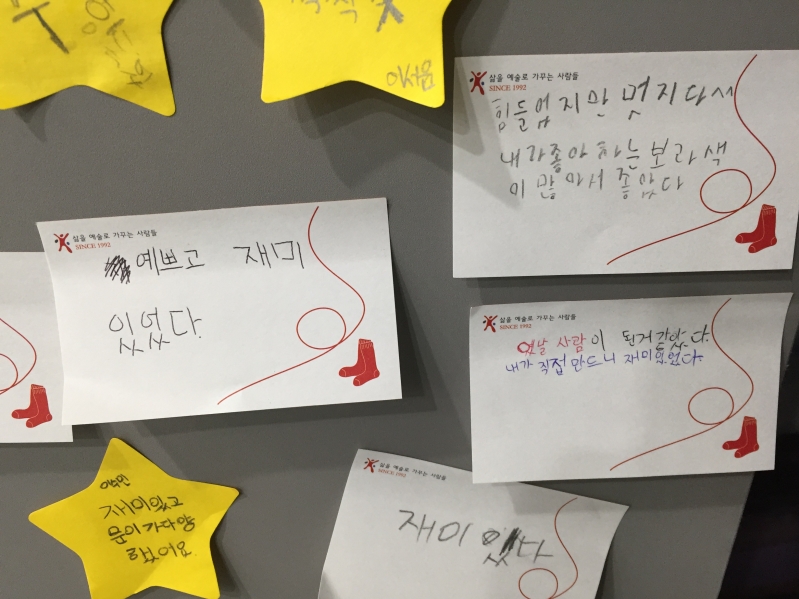 이서윰
삶을 예술로 가꾸는 사람들
SINCE 1992
힘들었지만 멋지다서
내가좋아하는보라색
이 많아서 좋았다
삶을 예술로 가꾸는 사람들
SINCE 1992
예쁘고 재미
있었다.
삶을 예술로 가꾸는 사람들
SINCE 1992
옛날 사람이 된거 같았다.
내가 직접 만드니 재미있었다.
재미있고
문이가다양
했어요
삶을 예술로 가꾸는 사람들
SINCE 1992
재미있다